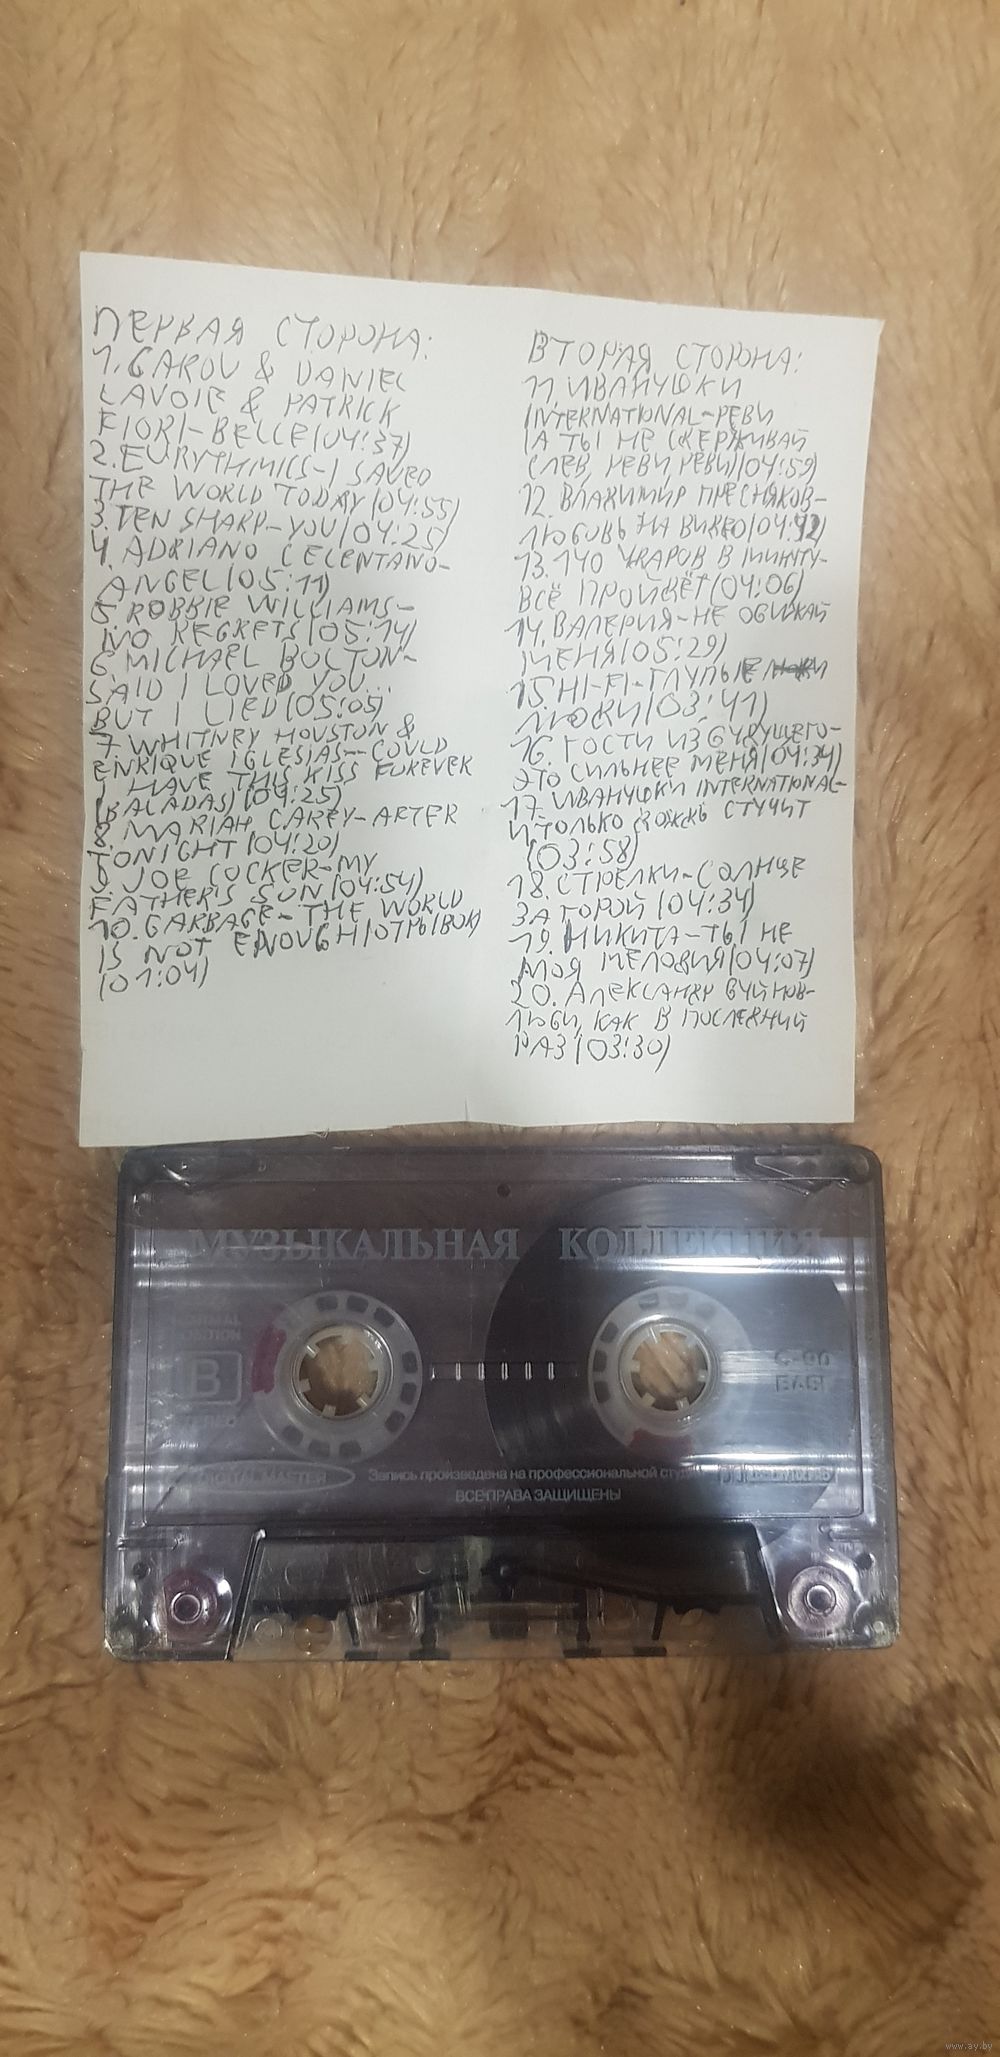 ПЕРВАЯ СТОРОНА:
1. GAROU & DANIEL
LAVOIE & PATRICK
FIORI-BELLE(04:37)
2. EURYTHMICS-I SAVED
THE WORLD TODAY(04:55)
3. TEN SHARP-YOU(04:25)
4. ADRIANO CELENTANO-
ANGEL(05:11)
5. ROBBIE WILLIAMS-
NO REGRETS(05:14)
6. MICHAEL BOLTON-
SAID I LOVED YOU...
BUT I LIED(05:05)
7. WHITNEY HOUSTON &
ENRIQUE IGLESIAS-COULD
I HAVE THIS KISS FOREVER
(BALADAS)(04:25)
8. MARIAH CAREY-AFTER
TONIGHT(04:20)
9. JOE COCKER-MY
FATHER'S SON(04:54)
10. GARBAGE-THE WORLD
IS NOT ENOUGH(ОТРЫВОК)
(01:04)
ВТОРАЯ СТОРОНА:
11. ИВАНУШКИ
INTERNATIONAL-РЕВИ
(А ТЫ НЕ СДЕРЖИВАЙ
СЛЁЗ, РЕВИ, РЕВИ)(04:59)
12. ВЛАДИМИР ПРЕСНЯКОВ-
ЛЮБОВЬ НА ВИДЕО(04:42)
13. 140 УДАРОВ В МИНУТУ-
ВСЁ ПРОЙДЁТ(04:06)
14. ВАЛЕРИЯ-НЕ ОБИЖАЙ
МЕНЯ(05:29)
15. HI-FI-ГЛУПЫЕ
ЛЮДИ(03:41)
16. ГОСТИ ИЗ БУДУЩЕГО-
ЭТО СИЛЬНЕЕ МЕНЯ(04:34)
17. ИВАНУШКИ INTERNATIONAL-
И ТОЛЬКО ДОЖДЬ СТУЧИТ
(03:58)
18. СТРЕЛКИ-СОЛНЦЕ
ЗА ГОРОЙ(04:34)
19. НИКИТА-ТЫ НЕ
МОЯ МЕЛОДИЯ(04:07)
20. АЛЕКСАНДР БУЙНОВ-
ЛЮБИ, КАК В ПОСЛЕДНИЙ
РАЗ(03:30)
МУЗЫКАЛЬНАЯ КОЛЛЕКЦИЯ
B
DIGITAL MASTER
Запись произведена на профессиональной
ВСЕ ПРАВА ЗАЩИЩЕНЫ
www.ay.by